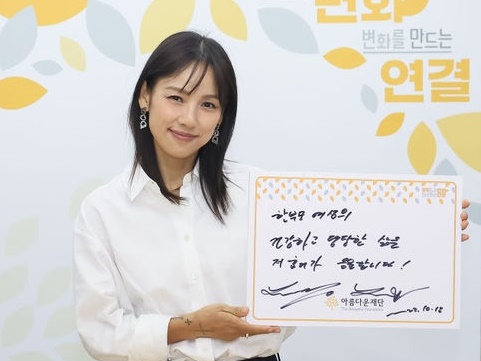 변화
변화를 만드는
연결
한부모 여성의
건강하고 당당한 삶을
저 효리가 응원합니다!
아름다운재단
The Beautiful Foundation